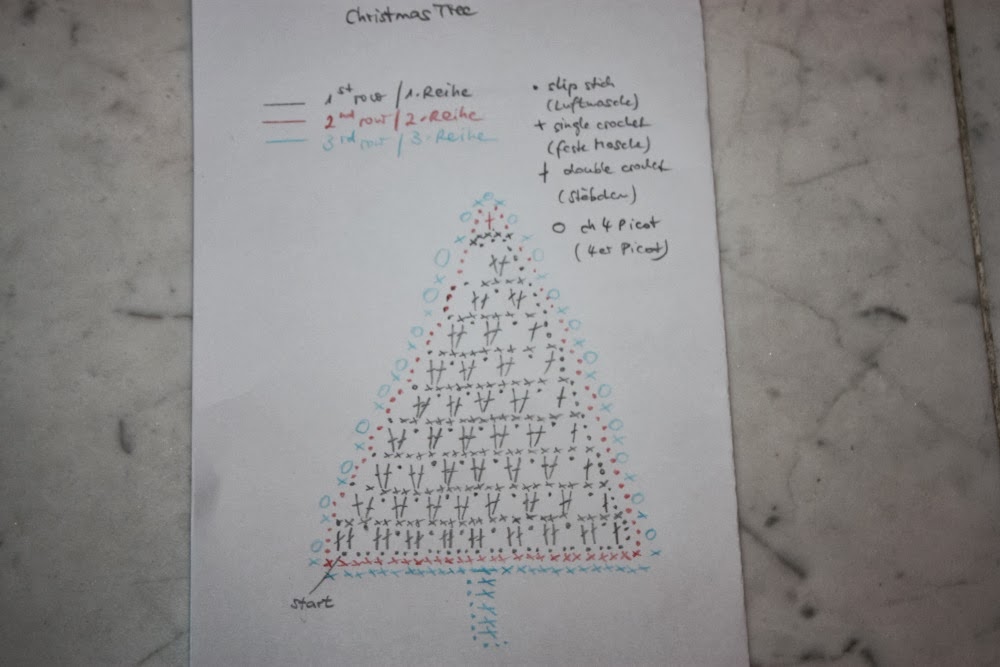 Christmas Tree
1st row / 1. Reihe
2nd row / 2. Reihe
3rd row / 3. Reihe
• slip stich
(Luftmasche)
+ single crochet
(feste Masche)
† double crochet
(Stäbchen)
o ch 4 Picot
(4er Picot)
start